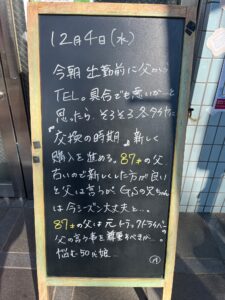 12月4日(水)
今朝 出勤前に父から
TEL。具合でも悪いかーと
思ったら、そろそろ冬タイヤに
『交換の時期』新しく
購入を進める。87才の父
古いので新しくした方が良い
と父は言うが、GSの兄ちゃん
は今シーズン大丈夫と…
87才の父は元トラックドライバー
父の言う事を尊重すべきか…
悩む50代娘…